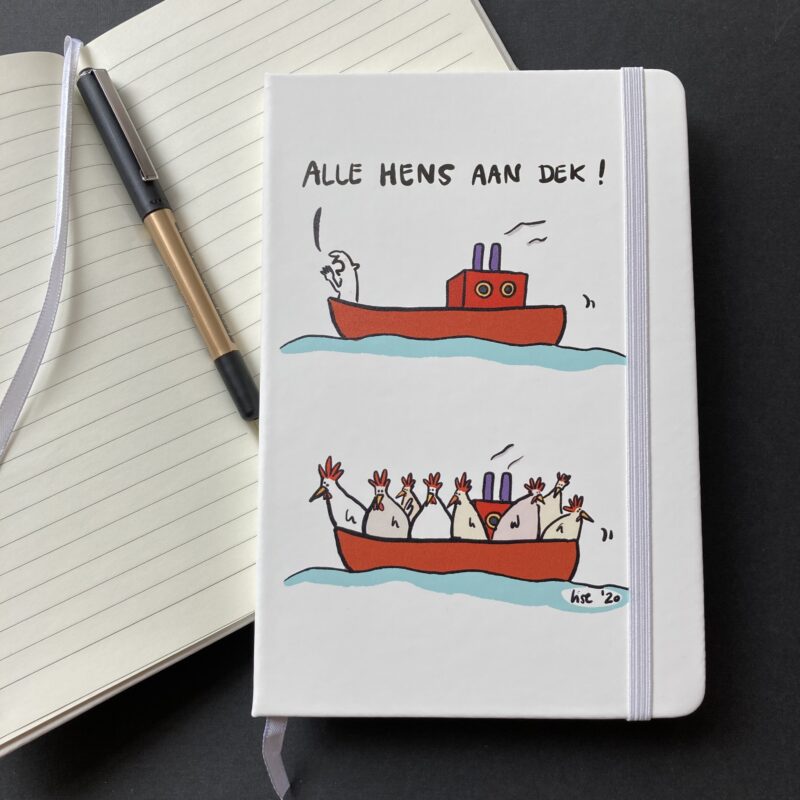 ALLE HENS AAN DEK!
lise '20